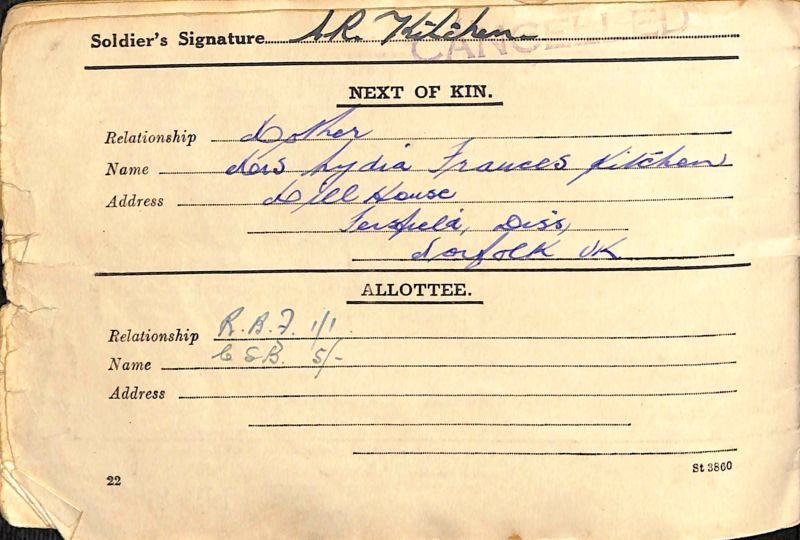 Soldier's Signature LR. Kitchen
CANCELLED
NEXT OF KIN.
Relationship Mother
Name Mrs Lydia Frances Kitchen
Address Mill House
Fersfield, Diss,
Norfolk UK
ALLOTTEE.
Relationship R.B.F. 1/1
Name C S B. 5/-
Address
St 3860
22